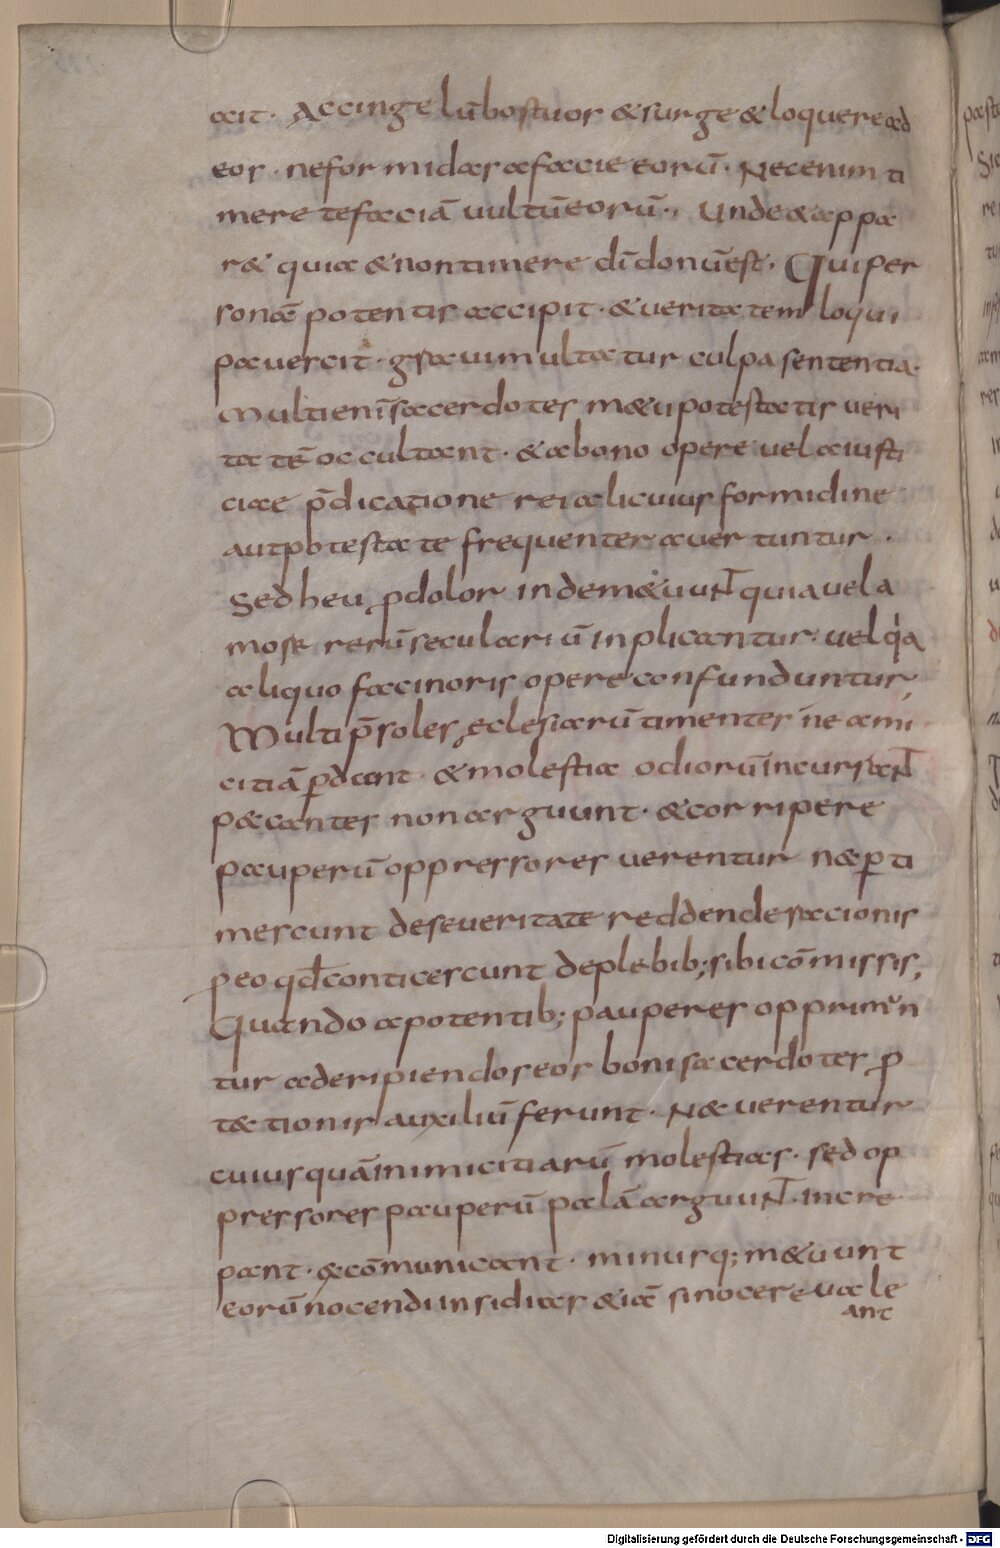 ait. Accinge lūbostuos &surge &loquere ad
eos. neformidas afacie eorū. Necenim ti
mere tefaciā uultūeorū., Unde&appa
r& quia &nontimere dīdonūest. Quiper
sonā potentis accipit. &ueritatem loqui
pauescit. grauimultatur culpa sententia.
Multienīsacerdotes m&upotestatis ueri
tatē occultant. &abono opere uel aiusti
ciae p̄dicatione reialicuius formidine
autpotestate frequenter auertuntur.
Sed heu ꝓdolor indem&uuNT quiauela
more rerūsecularium inplicantur. uel qia
aliquo facinoris opere confunduntur,
Multi p̄soles, eclesiarū timentes ne ami
citiā ꝑdant. &molestia odiorūincurraNT
p&cantes nonarguunt. &corripere
pauperū oppressores uerentur. n&ꝑti
mescunt deseueritate reddenderacionis
ꝓeo qđ conticescunt deplebib; sibicōmissis;
Quando apotentib; pauperes opprimun
tur aderipiendoseos boni sacerdotes ꝓ
t&tionis auxiliū ferunt. Nec uerentur
cuiusquā inimicitiarū molestias. sed op
pressores pauperū palā arguuNT. incre
pant. &cōmunicant. minusq; m&uunt
eorūnocendi insidias &iā sinocere uale
ant
Digitalisierung gefördert durch die Deutsche Forschungsgemeinschaft - DFG